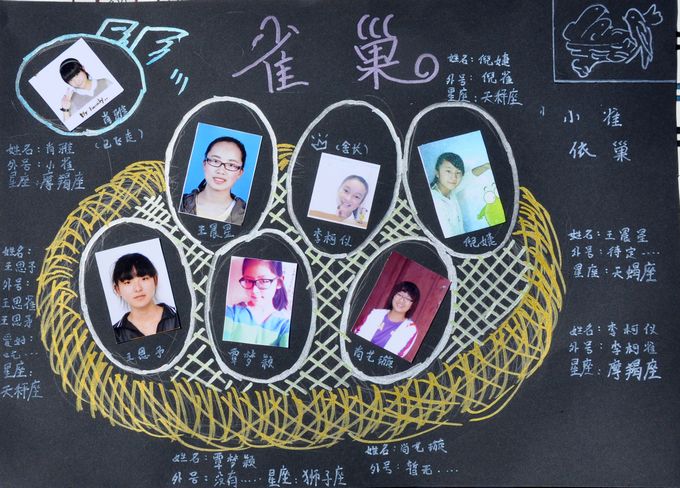 雀巢
姓名：倪婕
外号：倪雀
星座：天秤座
小雀
依巢
肖雅
(已飞走)
姓名：肖雅
外号：小雀
星座：摩羯座
(舍长)
王晨星
李柯仪
倪婕
姓名：王晨星
外号：待定....
星座：天蝎座
姓名：
王思予
外号：
王思雀
王思弟
星座：
天秤座
王思予
覃梦颖
尚艺璇
姓名：李柯仪
外号：李柯雀
星座：摩羯座
姓名：覃梦颖
外号：没有....
星座：狮子座
姓名：尚艺璇
外号：暂无....